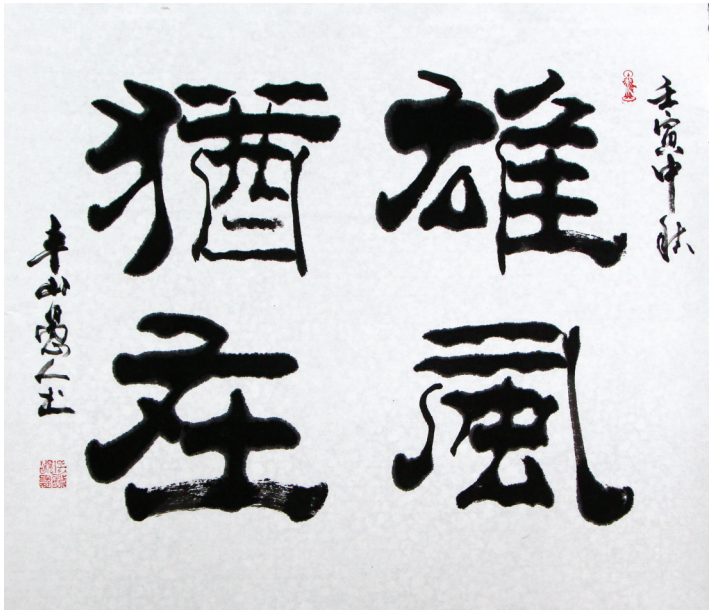 壬寅中秋
雄風
猶在
車山愚人書